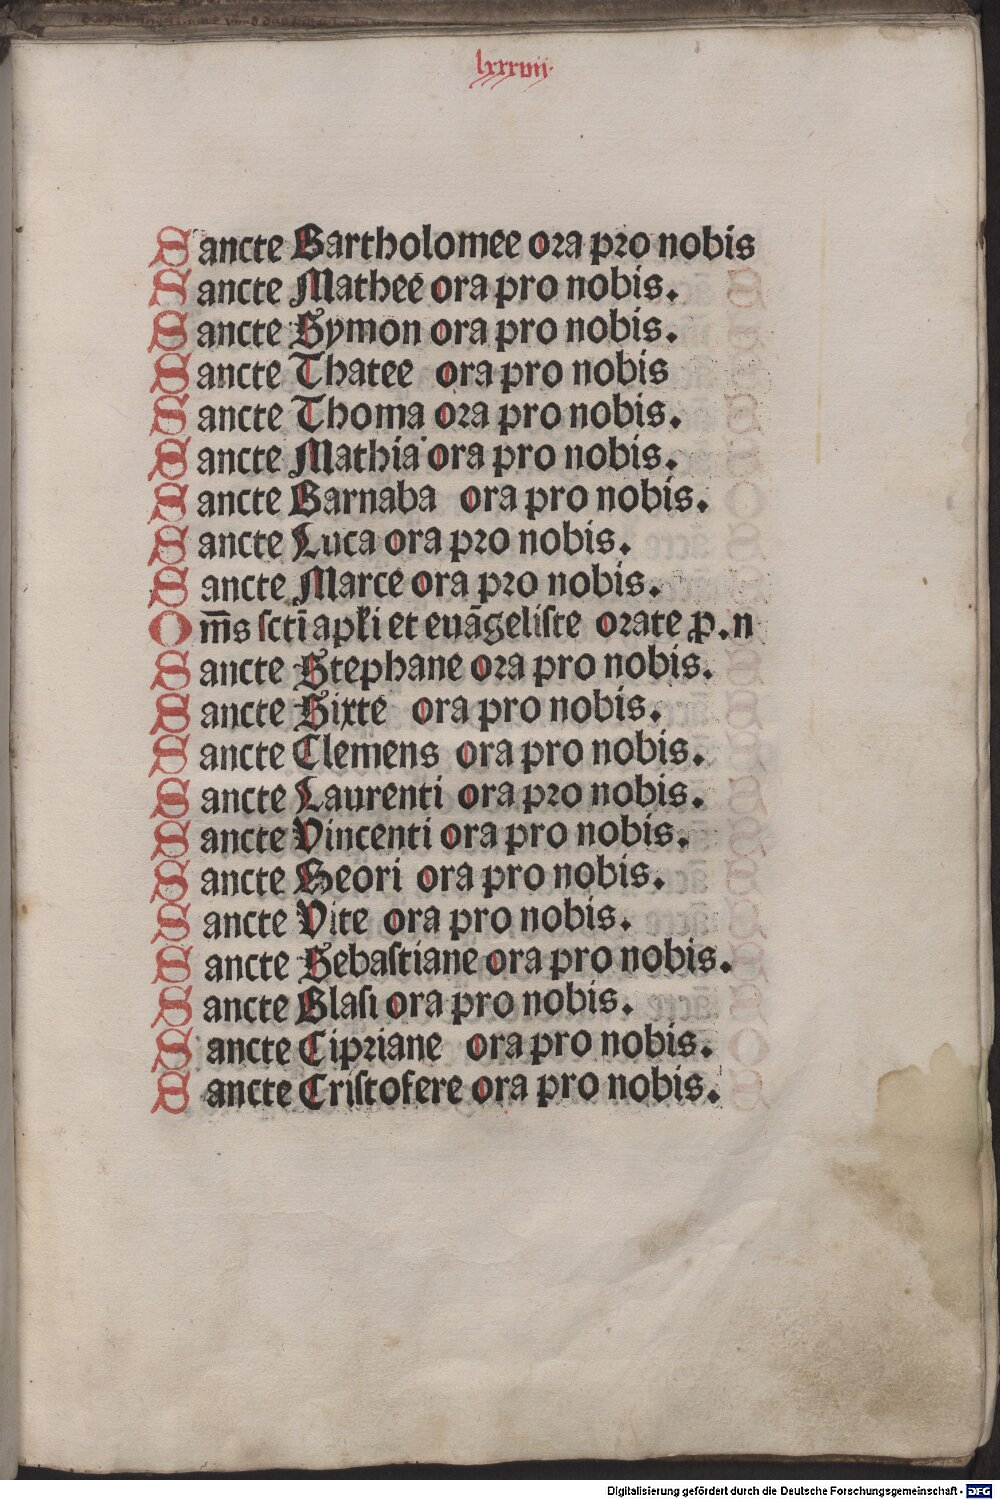 lxxxvii.
Sancte Bartholomee ora pro nobis
Sancte Mathee ora pro nobis.
Sancte Symon ora pro nobis.
Sancte Thatee ora pro nobis
Sancte Thoma ora pro nobis.
Sancte Mathia ora pro nobis.
Sancte Barnaba ora pro nobis.
Sancte Luca ora pro nobis.
Sancte Marce ora pro nobis.
Om̄s sctī apłi et euāgeliste orate ꝓ.n
Sancte Stephane ora pro nobis.
Sancte Sixte ora pro nobis.
Sancte Clemens ora pro nobis.
Sancte Laurenti ora pro nobis.
Sancte Vincenti ora pro nobis.
Sancte Geori ora pro nobis.
Sancte Vite ora pro nobis.
Sancte Sebastiane ora pro nobis.
Sancte Blasi ora pro nobis.
Sancte Cipriane ora pro nobis.
Sancte Cristofere ora pro nobis.
Digitalisierung gefördert durch die Deutsche Forschungsgemeinschaft - DFG